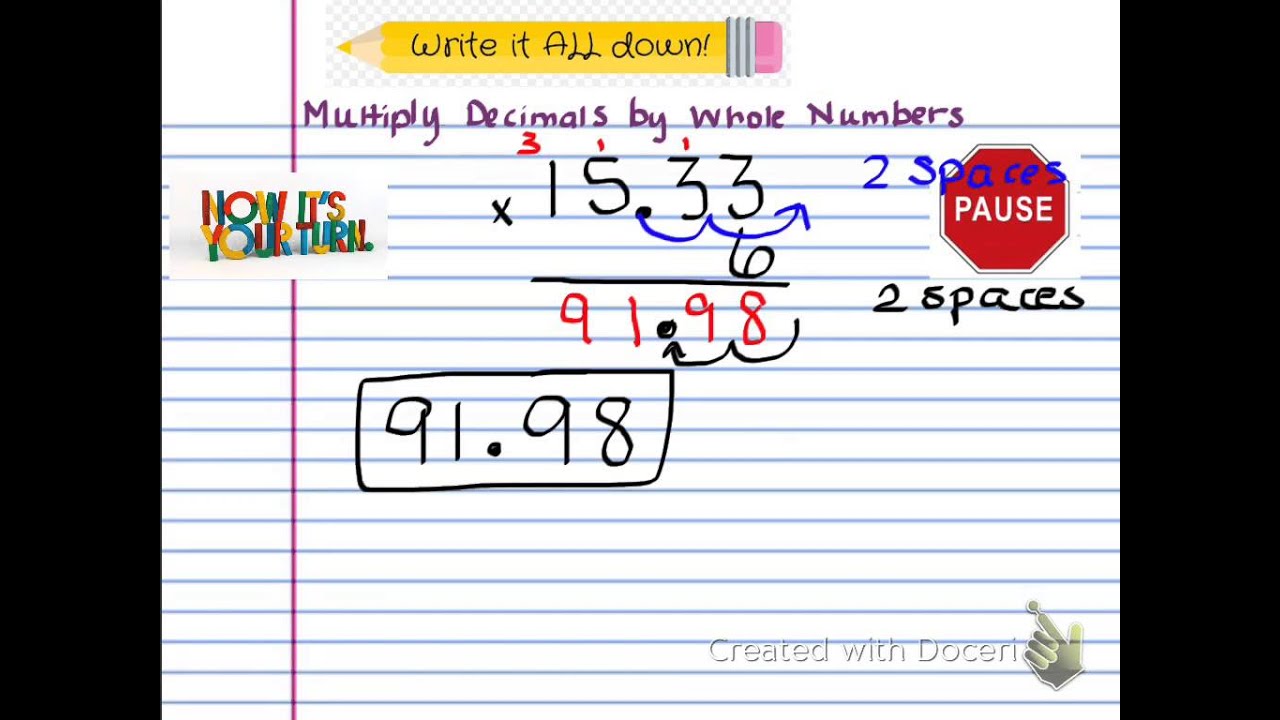 Write it ALL down!
Multiply Decimals by Whole Numbers
3 1 1
15.33
2 spaces
PAUSE
NOW IT'S
YOUR TURN.
x 6
91.98
2 spaces
91.98
Created with Doceri